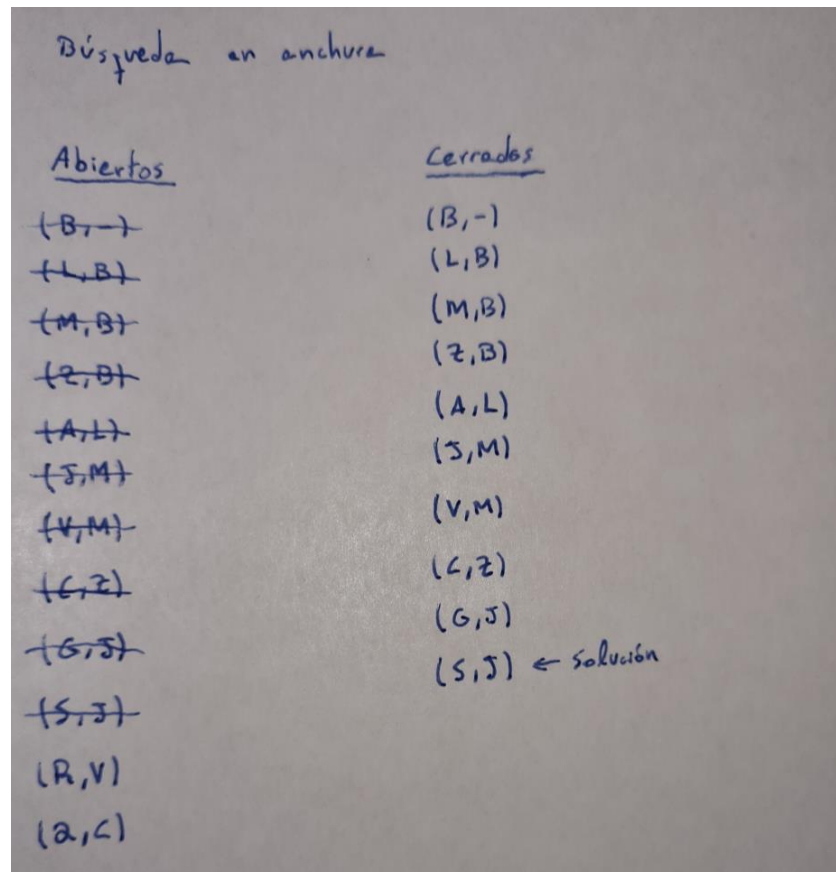 Búsqueda en anchura
Abiertos
(B,-)
(L,B)
(M,B)
(Z,B)
(A,L)
(J,M)
(V,M)
(C,Z)
(G,J)
(S,J)
(R,V)
(Q,C)
Cerrados
(B,-)
(L,B)
(M,B)
(Z,B)
(A,L)
(J,M)
(V,M)
(C,Z)
(G,J)
(S,J) ← Solución